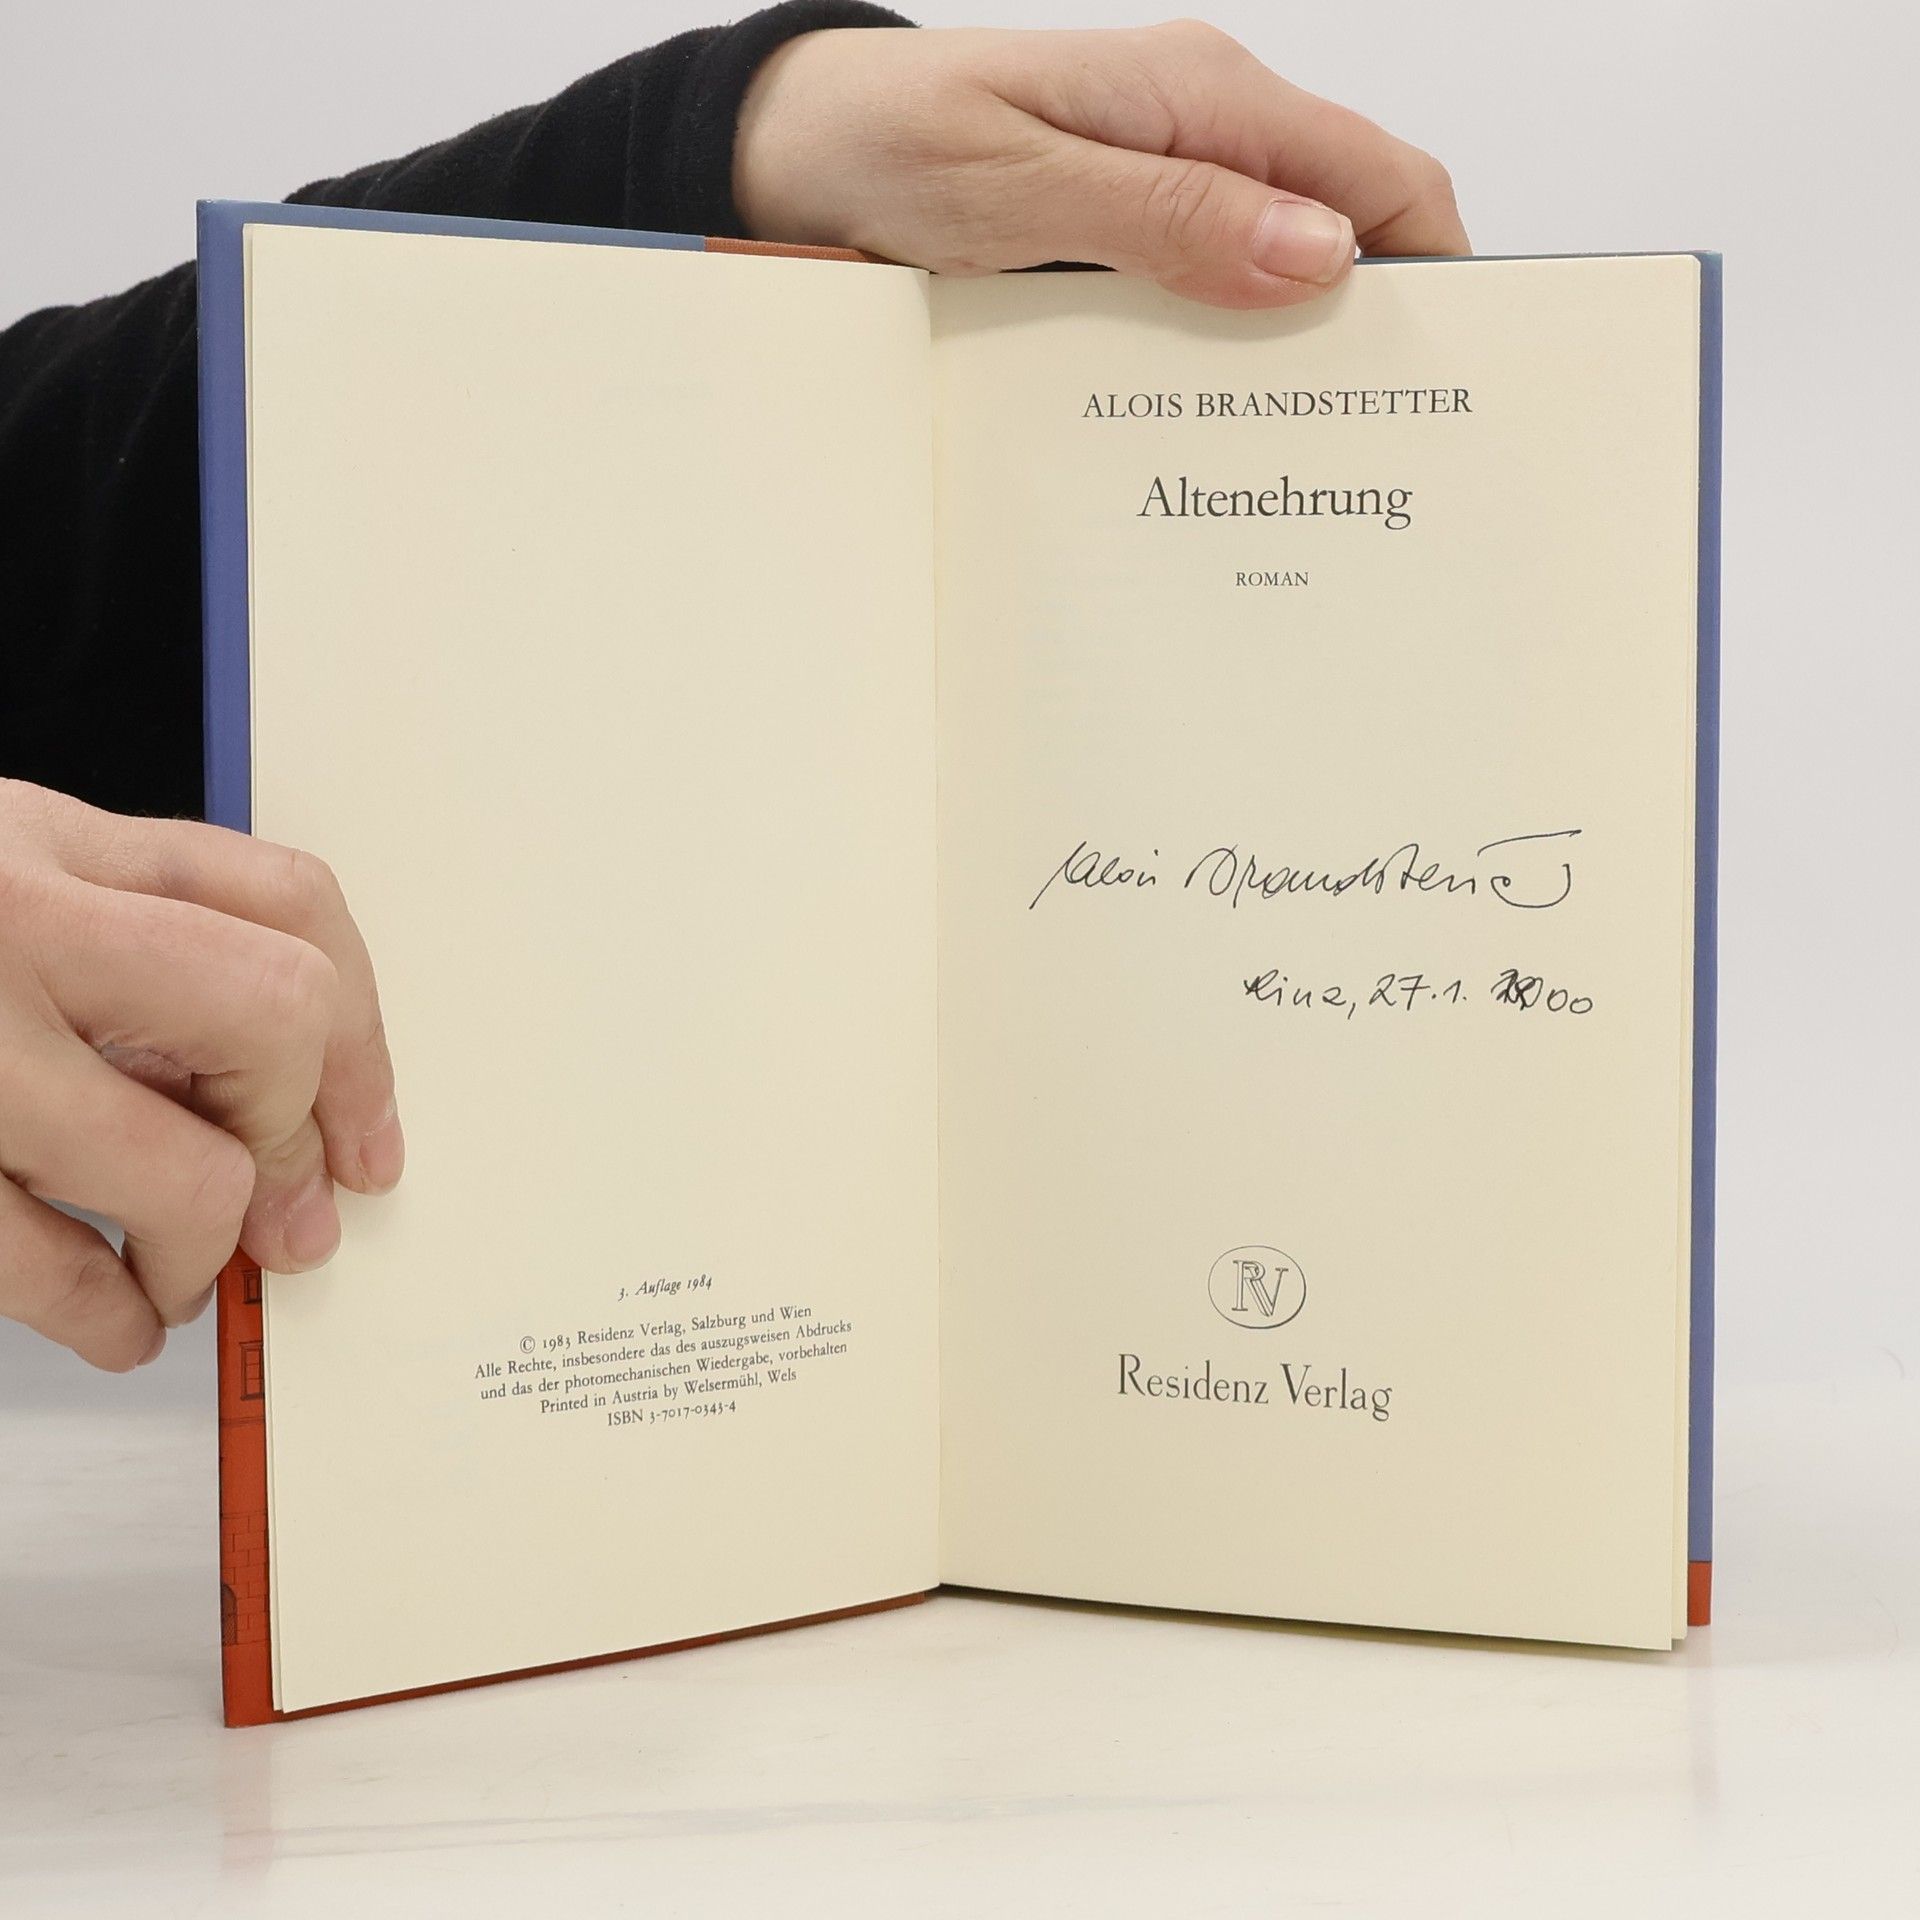 3. Auflage 1984
© 1983 Residenz Verlag, Salzburg und Wien
Alle Rechte, insbesondere das des auszugsweisen Abdrucks
und das der photomechanischen Wiedergabe, vorbehalten
Printed in Austria by Welsermühl, Wels
ISBN 3-7017-0343-4
ALOIS BRANDSTETTER
Altenehrung
ROMAN
Alois Brandstetter
Linz, 27.1. 2000
RV
Residenz Verlag